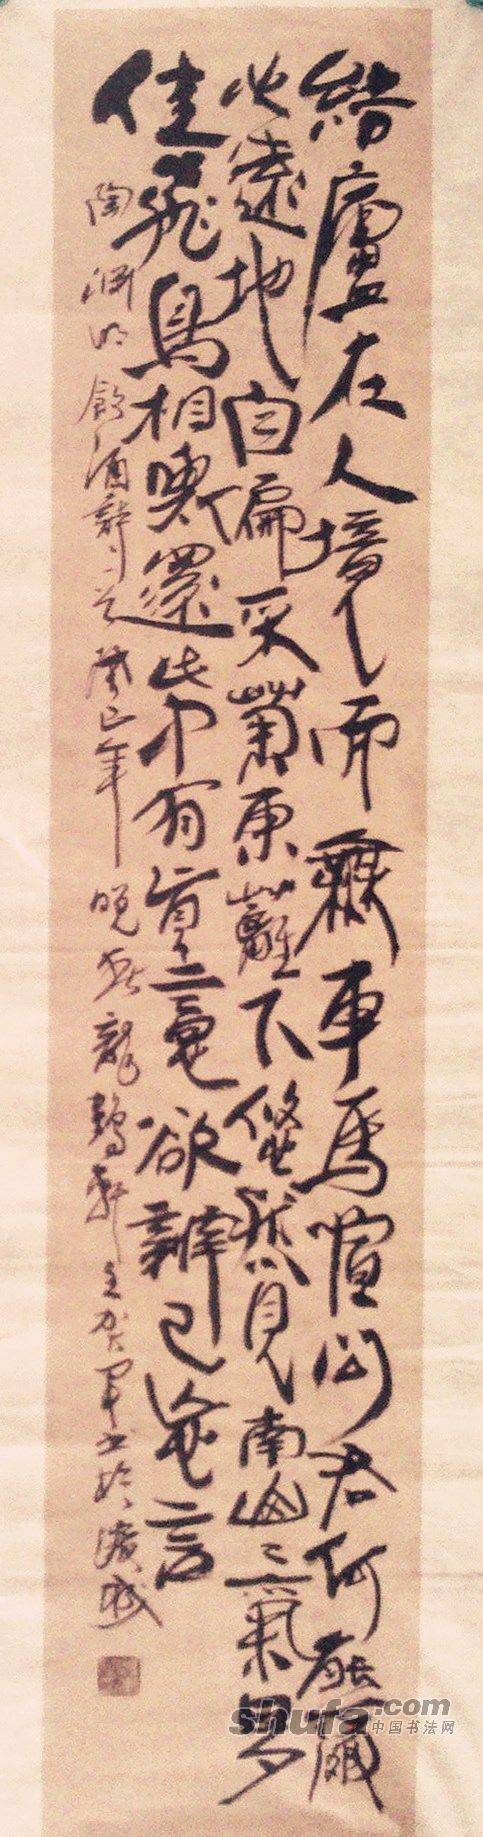 結廬在人境而無車馬喧問君何能爾
心遠地自偏采菊東籬下悠然見南山〻氣日夕
佳飛鳥相與還此中有真意欲辨已忘言
陶淵明飲酒詩 癸巳年晚秋龍軒主賀軍書於濱城
shufa.com
中国书法网